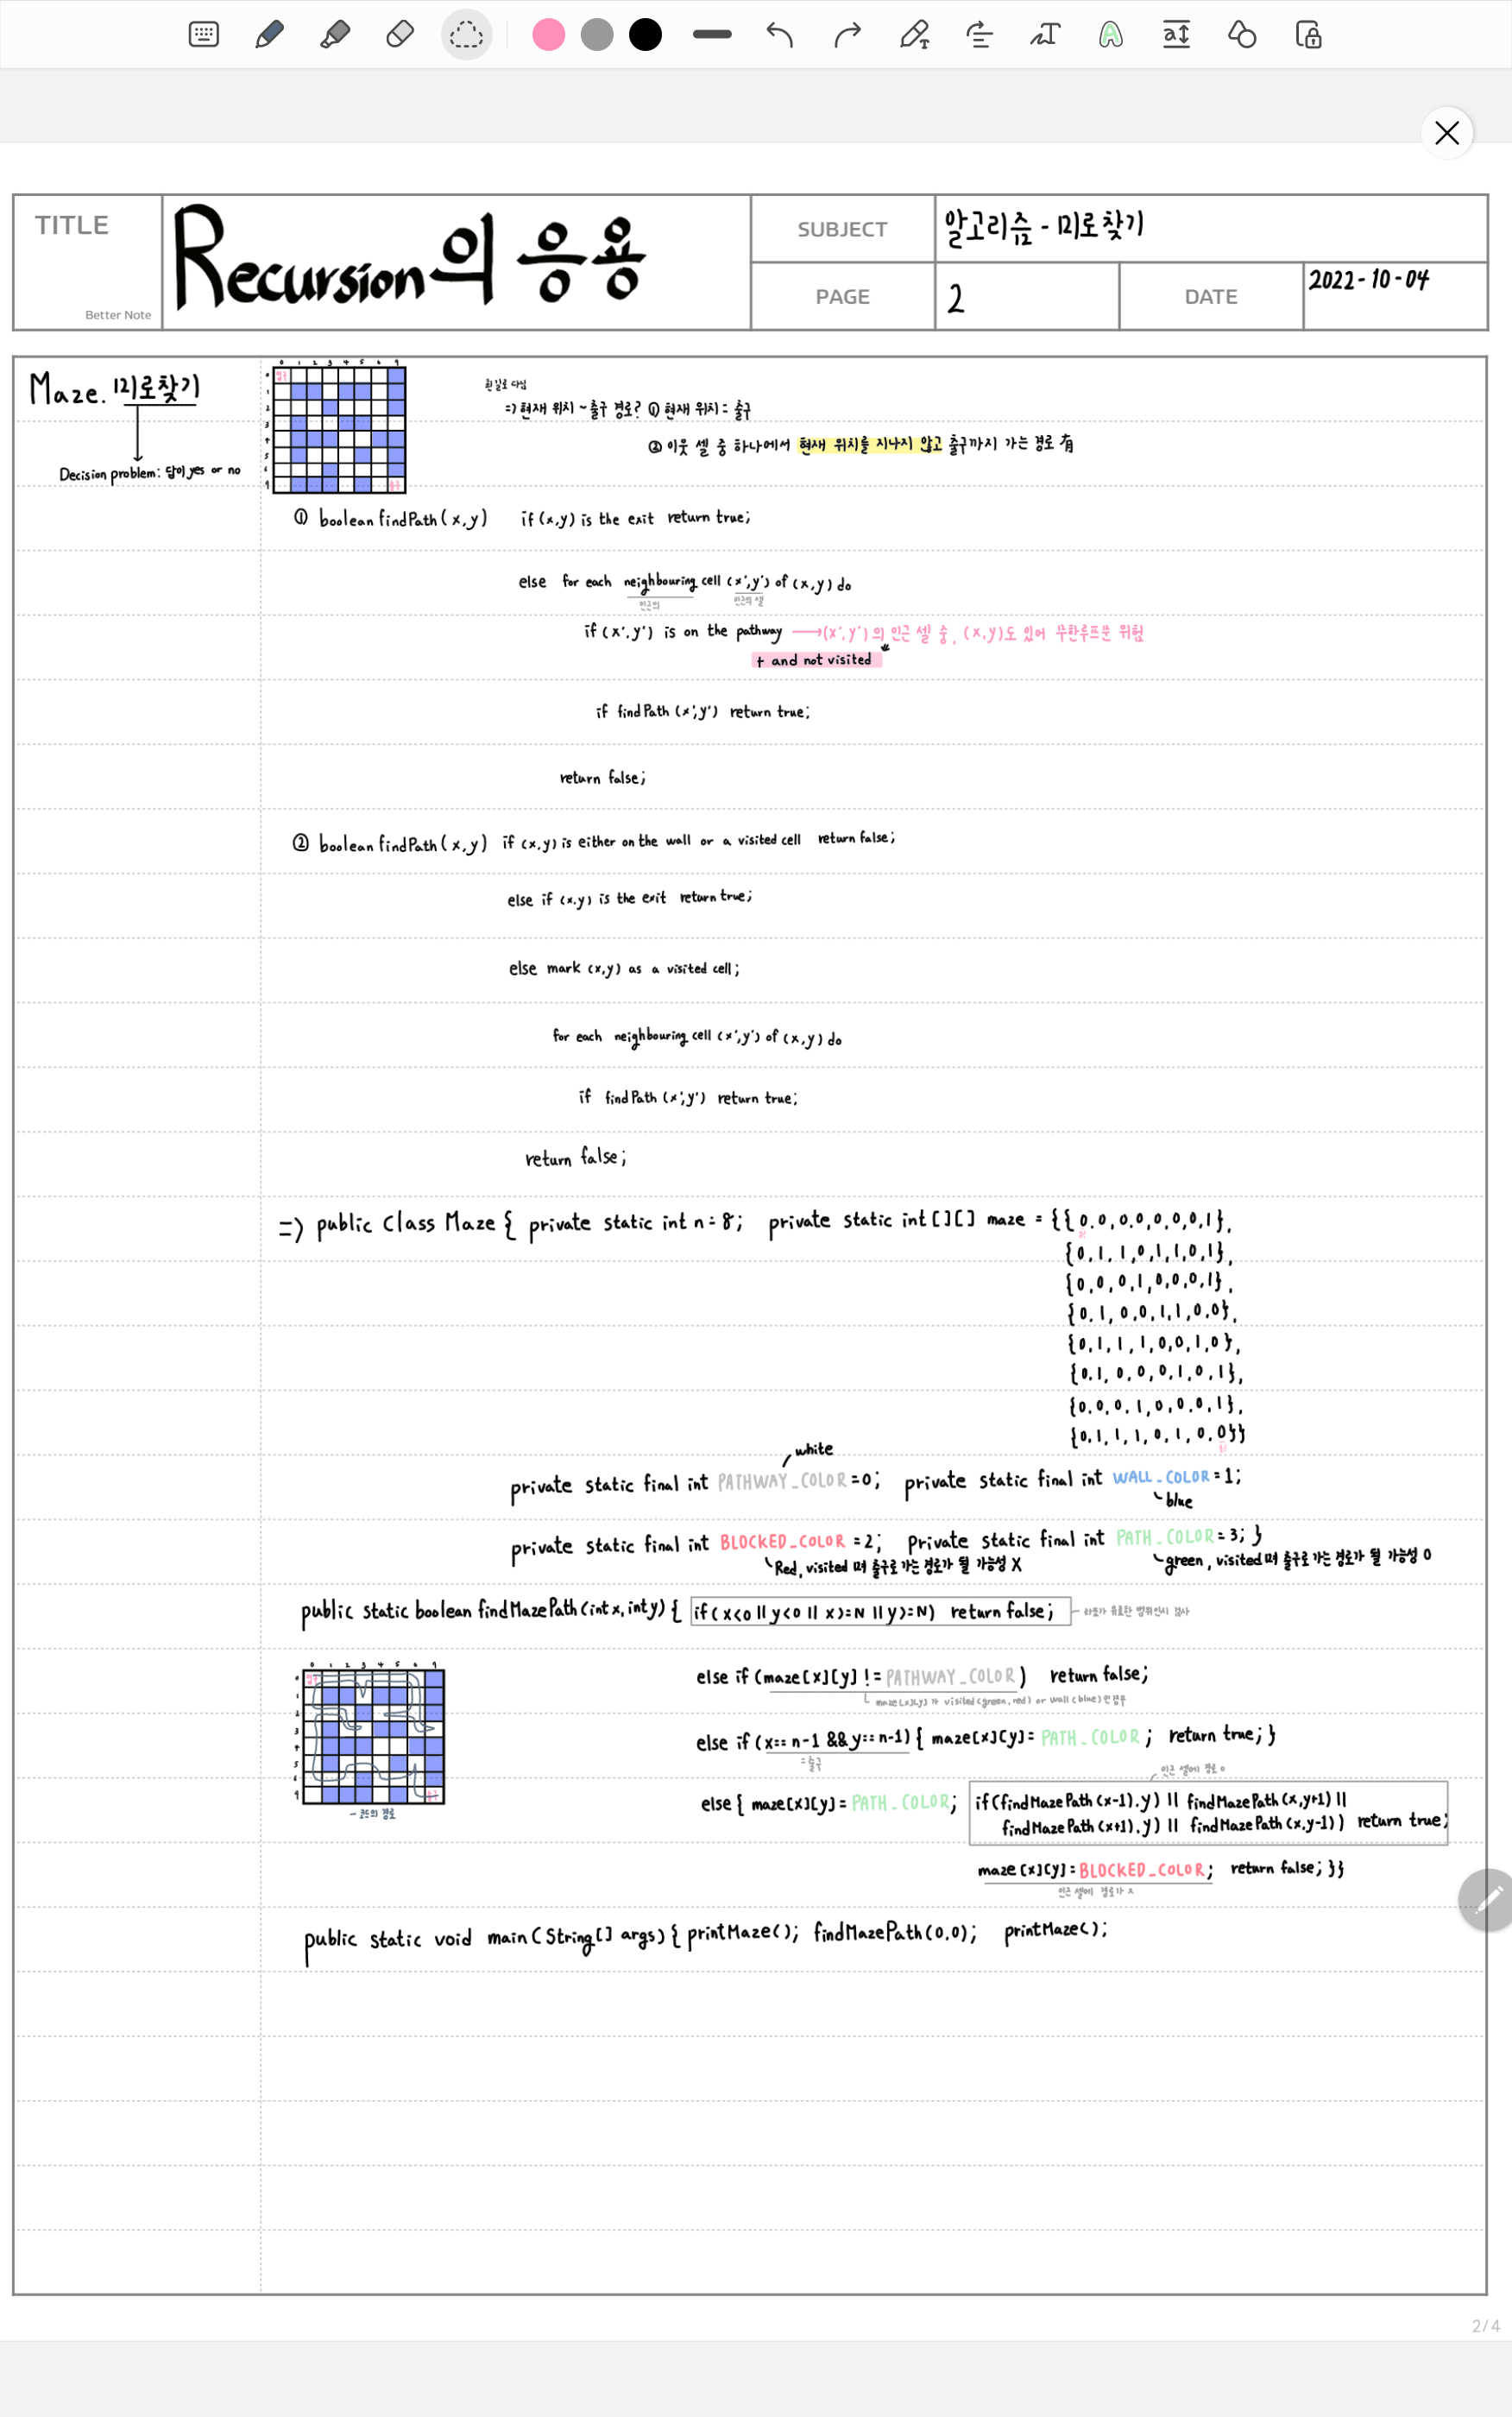 TITLE
Better Note
Recursion의 응용
SUBJECT
알고리즘 - 미로찾기
PAGE
2
DATE
2022-10-04
Maze. 미로찾기
Decision problem: 답이 yes or no
0 1 2 3 4 5 6 7
0 입구
1
2
3
4
5
6
7 출구
흰 길로 다님
=> 현재 위치 ~ 출구 경로? ① 현재 위치 = 출구
② 이웃 셀 중 하나에서 현재 위치를 지나지 않고 출구까지 가는 경로 有
① boolean findPath(x,y) if (x,y) is the exit return true;
else for each neighbouring cell (x',y') of (x,y) do
인근의 인근의 셀
if (x',y') is on the pathway → (x',y')의 인근 셀 중, (x,y)도 있어 무한루프문 위험
+ and not visited
if findPath (x',y') return true;
return false;
② boolean findPath(x,y) if (x,y) is either on the wall or a visited cell return false;
else if (x,y) is the exit return true;
else mark (x,y) as a visited cell;
for each neighbouring cell (x',y') of (x,y) do
if findPath (x',y') return true;
return false;
=> public Class Maze { private static int n=8; private static int[][] maze = {{0,0,0,0,0,0,0,1},
{0,1,1,0,1,1,0,1},
{0,0,0,1,0,0,0,1},
{0,1,0,0,1,1,0,0},
{0,1,1,1,0,0,1,0},
{0,1,0,0,0,1,0,1},
{0,0,0,1,0,0,0,1},
{0,1,1,1,0,1,0,0}}
white
private static final int PATHWAY_COLOR=0; private static final int WALL_COLOR=1;
blue
private static final int BLOCKED_COLOR=2; private static final int PATH_COLOR=3; }
Red, visited 며 출구로 가는 경로가 될 가능성 X
green, visited 며 출구로 가는 경로가 될 가능성 O
public static boolean findMazePath(int x, int y) { if(x<0 || y<0 || x>=N || y>=N) return false;
좌표가 유효한 범위인지 검사
0 1 2 3 4 5 6 7
0 입구
1
2
3
4
5
6
7 출구
- 코드의 경로
else if (maze[x][y] != PATHWAY_COLOR) return false;
maze[x][y]가 visited(green, red) or wall(blue)인 경우
else if (x== n-1 && y== n-1) { maze[x][y]= PATH_COLOR ; return true; }
=출구
인근 셀에 경로 O
else { maze[x][y]= PATH_COLOR; if(findMazePath(x-1),y) || findMazePath(x,y+1) ||
findMazePath(x+1),y) || findMazePath(x,y-1)) return true;
maze[x][y]=BLOCKED_COLOR; return false; }}
인근 셀에 경로가 X
public static void main(String[] args) { printMaze(); findMazePath(0,0); printMaze();
2/4